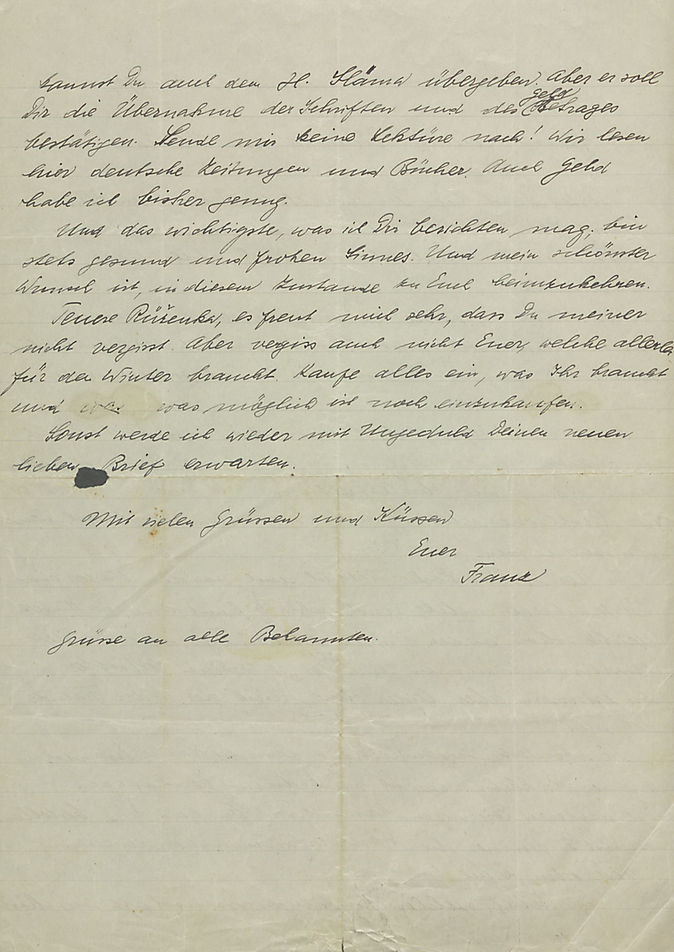 kannst Du auch dem H. Sláma übergeben. Aber er soll
Dir die Übernahme der Schriften und des Geldbetrages
bestätigen. Sende mir keine Lektüre nach! Wir lesen
hier deutsche Zeitungen und Bücher. Auch Geld
habe ich bisher genug.
Und das wichtigste, was ich Dir berichten mag; bin
stets gesund und frohen Sinnes. Und mein schönster
Wunsch ist, in diesem Zustande zu Euch heimzukehren.
Teuere Růženka, es freut mich sehr, dass Du meiner
nicht vergisst. Aber vergiss auch nicht Euer, welche allerlei
für den Winter braucht. Kaufe alles ein, was Ihr braucht
und was möglich ist noch einzukaufen.
Sonst werde ich wieder mit Ungeduld Deinen neuen
lieben Brief erwarten.
Mit vielen Grüssen und Küssen
Euer
Franz
Grüsse an alle Bekannten.